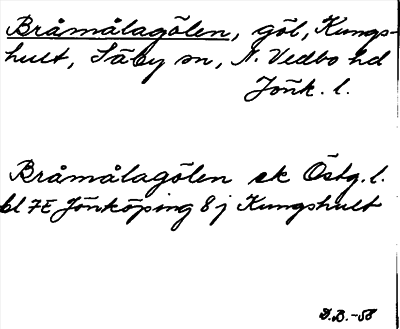 Bråmålagölen, göl, Kungs-
hult, Säby sn, N. Vedbo hd
Jönk. l.
Bråmålagölen ek Östg. l.
bl 7E Jönköping 8j Kungshult
D.B.-58